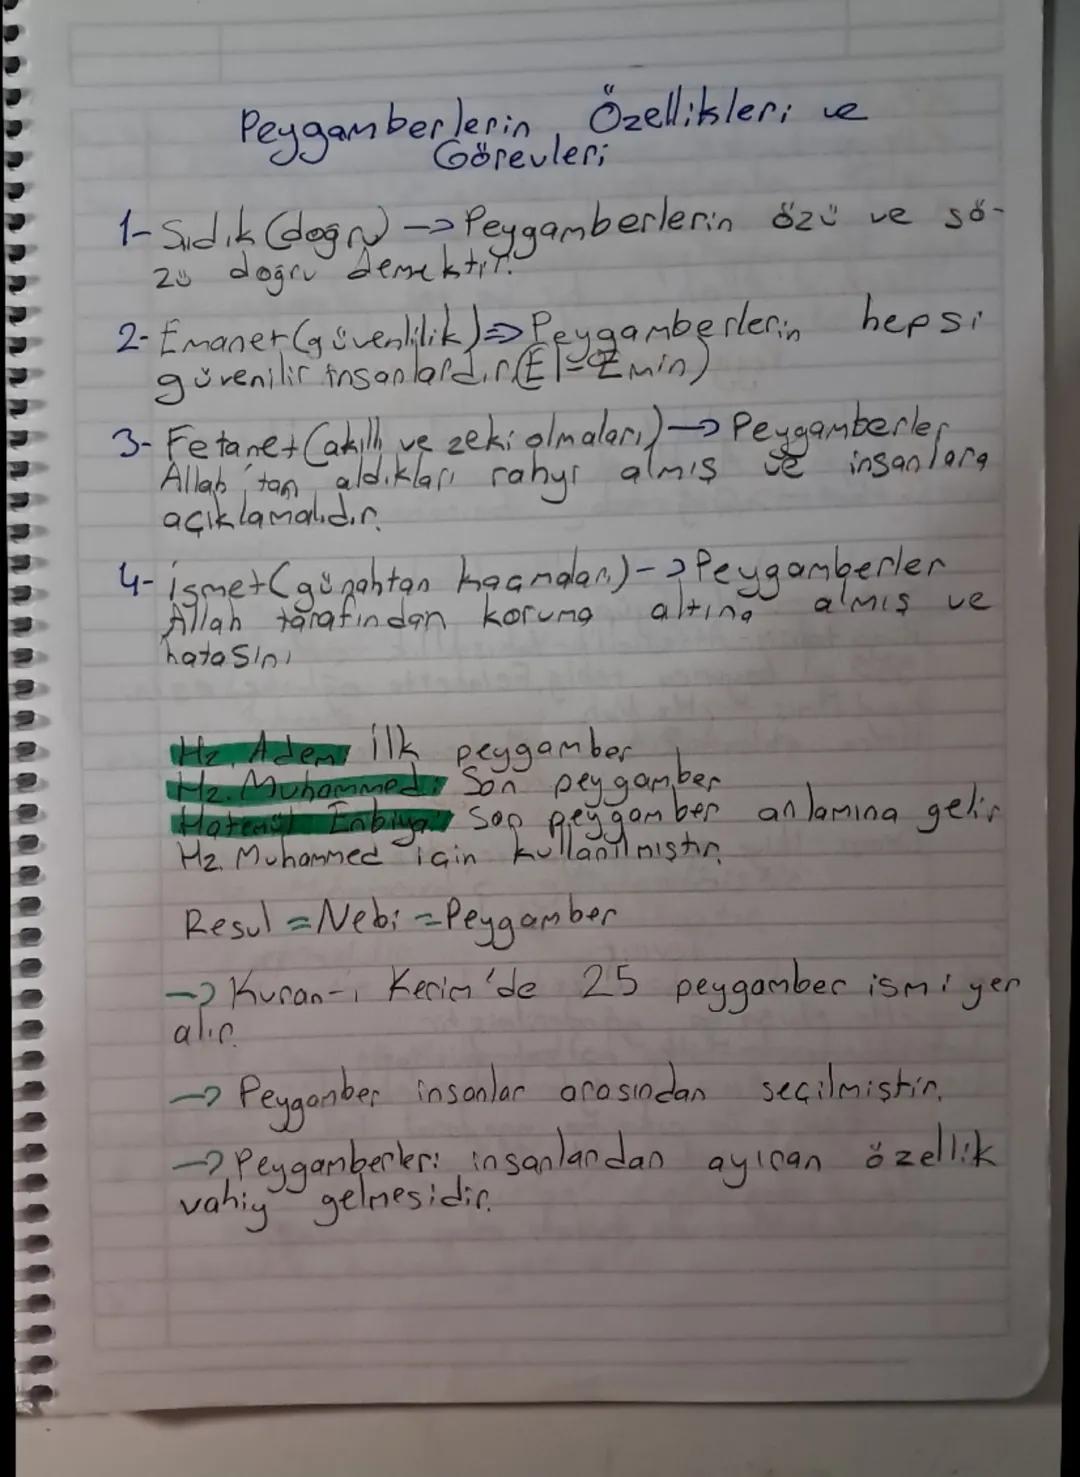 Peygamberlerin Özellikleri ve
Görevleri
1- Sıdık (doğru) -> Peygamberlerin özü ve sö-
zü doğru demektir.
2- Emanet (güvenlilik) => Peygamberlerin hepsi
güvenilir insanlardır. (El-Emin)
3- Fetanet (akıllı ve zeki olmaları) -> Peygamberler
Allah'tan aldıkları vahyi almış ve insanlara
açıklamalıdır.
4- İsmet (günahtan kaçmaları) -> Peygamberler
Allah tarafından koruma altına almış ve
hatasını
Hz. Adem: İlk peygamber
Hz. Muhammed: Son peygamber
Hatemül Enbiya: Son peygamber anlamına gelir
Hz. Muhammed için kullanılmıştır.
Resul = Nebi = Peygamber
-> Kuran-ı Kerim'de 25 peygamber ismi yer
alır.
-> Peygamber insanlar arasından seçilmiştir.
-> Peygamberleri insanlardan ayıran özellik
vahiy gelmesidir.